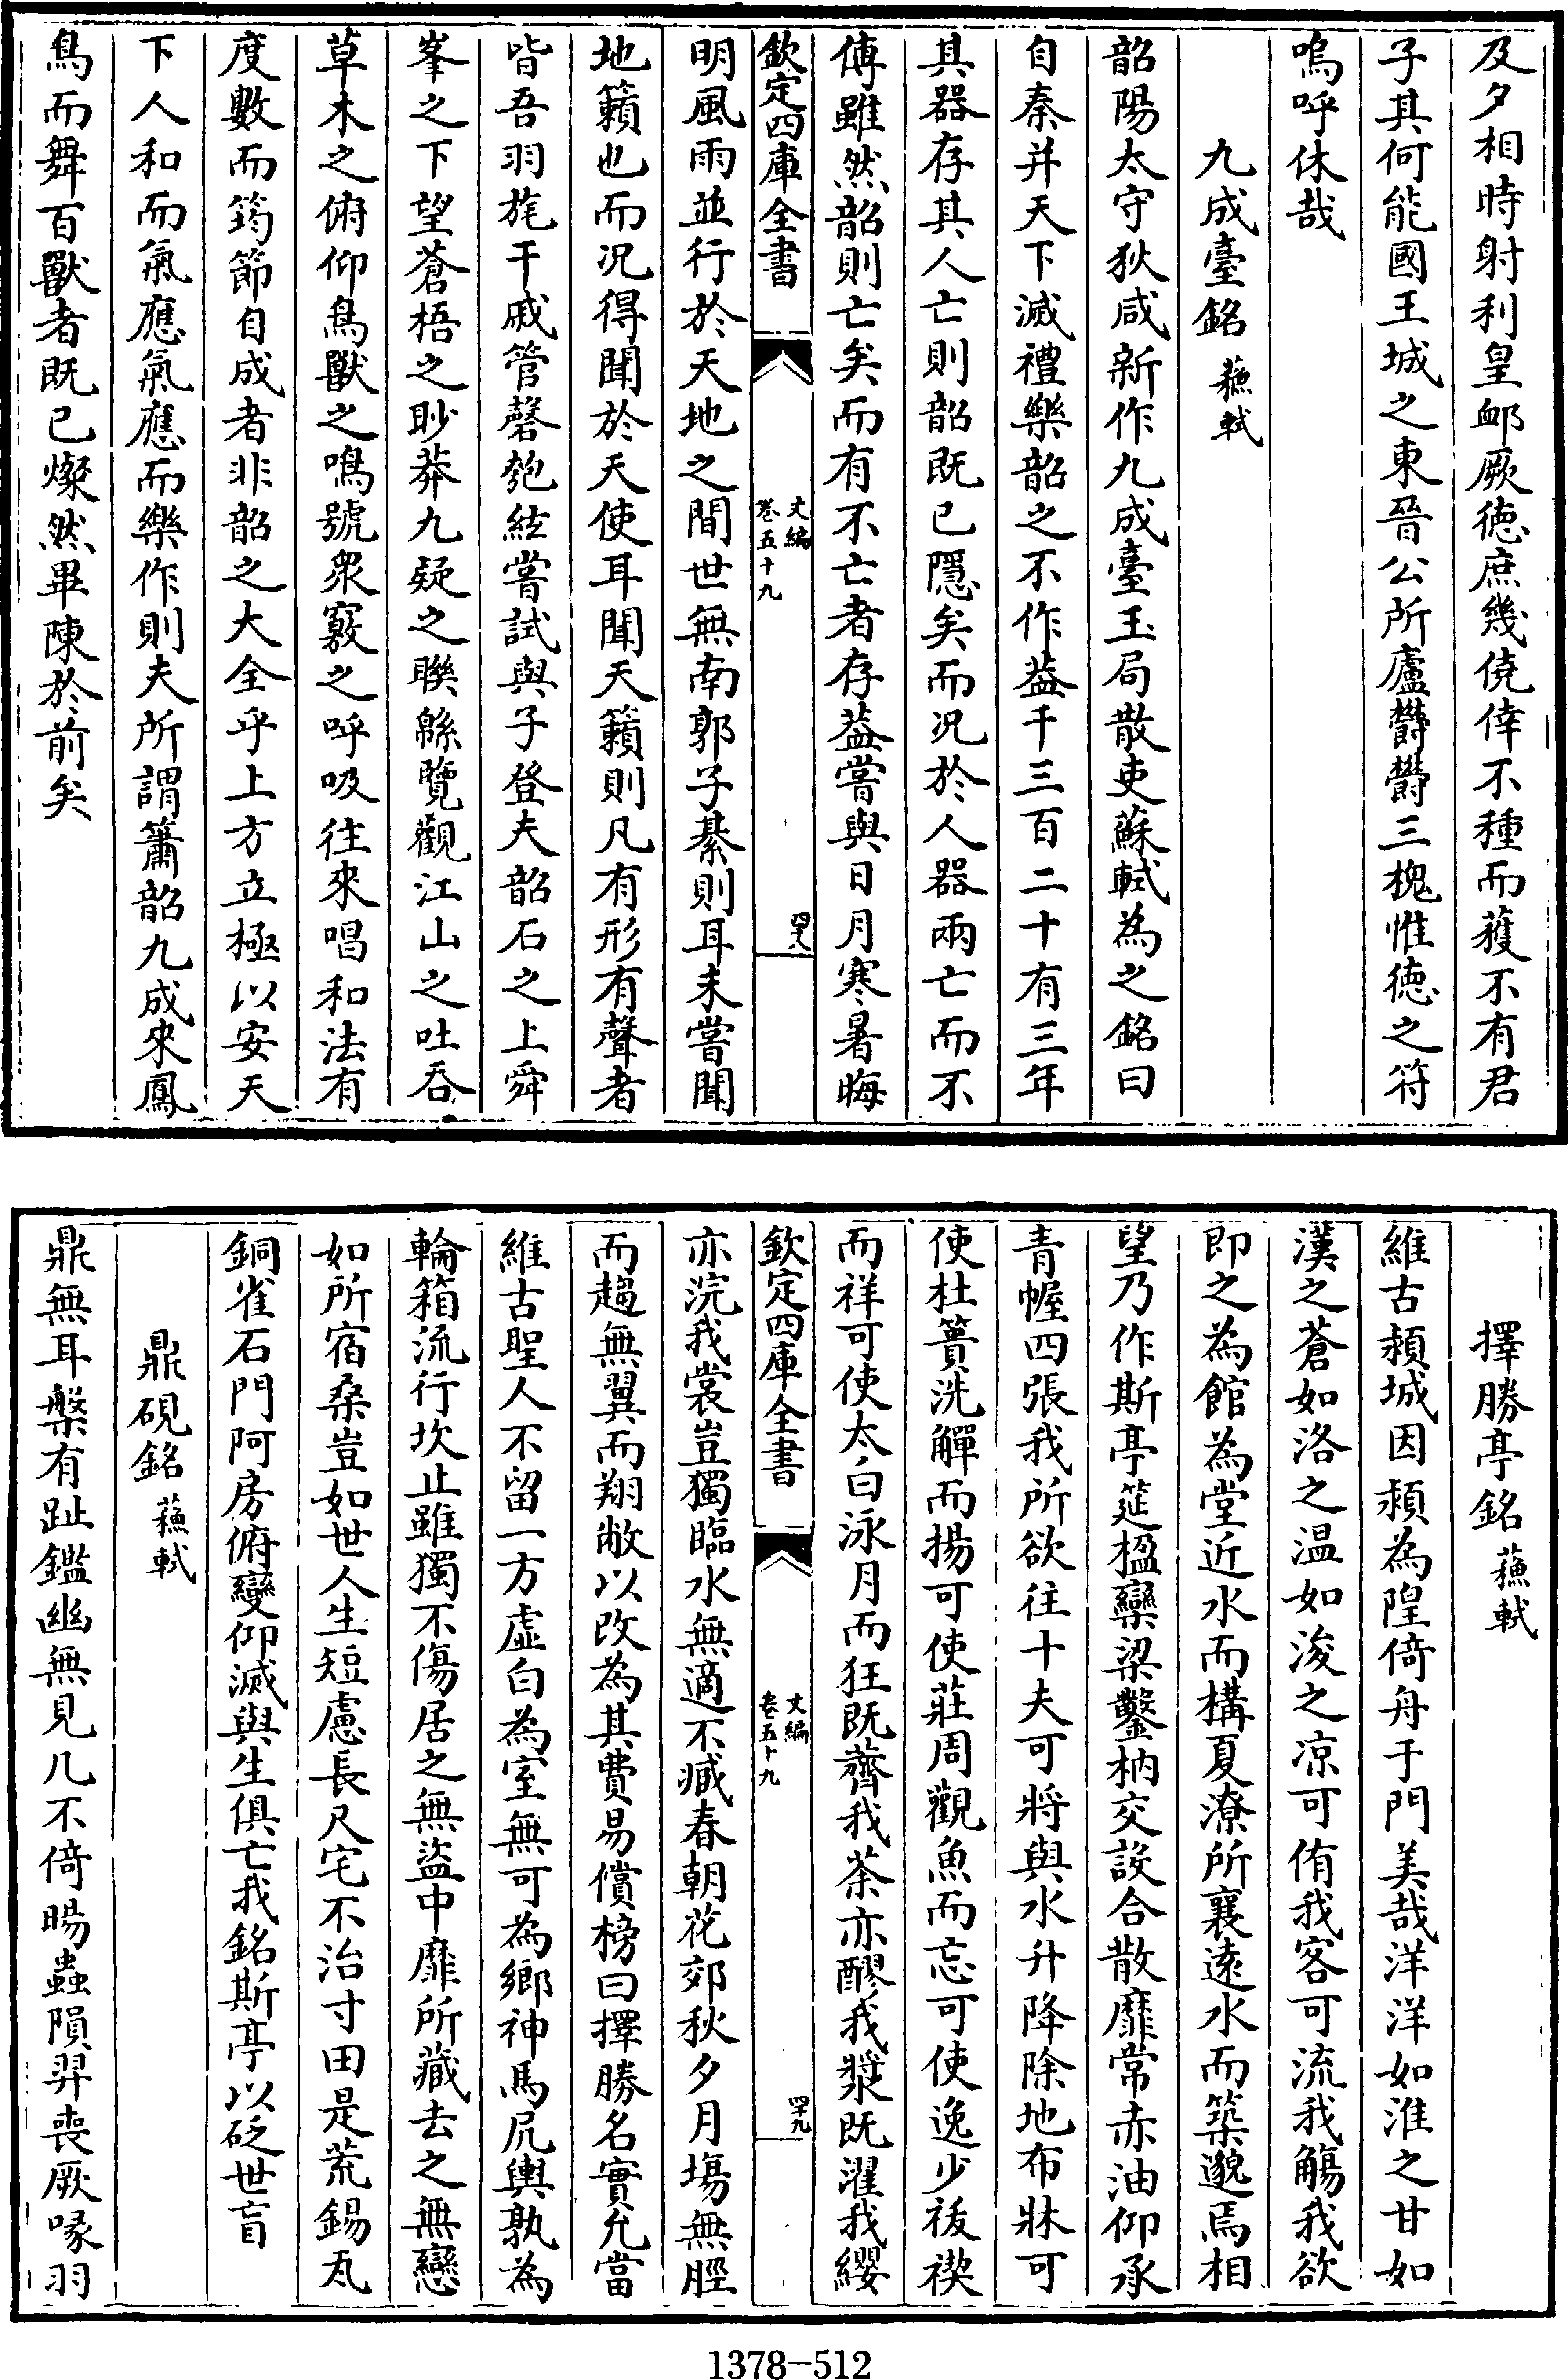 及夕相時射利皇䘏厥德庶幾僥倖不種而穫不有君
子其何能國王城之東晉公所廬鬱鬱三槐惟德之符
嗚呼休哉
九成臺銘 蘓軾
韶陽太守狄咸新作九成臺玉局散吏蘇軾為之銘曰
自秦并天下滅禮樂韶之不作葢千三百二十有三年
其器存其人亡則韶既已隱矣而况於人器兩亡而不
傳雖然韶則亡矣而有不亡者存葢嘗與日月寒暑晦
欽定四庫全書
文編
卷五十九
四十八
明風雨並行於天地之間世無南郭子綦則耳未嘗聞
地籟也而况得聞於天使耳聞天籟則凡有形有聲者
皆吾羽旄干戚管磬匏絃嘗試與子登夫韶石之上舜
峯之下望蒼梧之眇莽九疑之聯緜覽觀江山之吐吞
草木之俯仰鳥獸之鳴號衆竅之呼吸往來唱和法有
度數而筠節自成者非韶之大全乎上方立極以安天
下人和而氣應氣應而樂作則夫所謂簫韶九成來鳳
鳥而舞百獸者既已燦然畢陳於前矣
擇勝亭銘 蘓軾
維古潁城因潁為隍倚舟于門美哉洋洋如淮之甘如
漢之蒼如洛之温如浚之凉可侑我客可流我觴我欲
即之為館為堂近水而構夏潦所襄遠水而築邈焉相
望乃作斯亭筵楹欒梁鑿枘交設合散靡常赤油仰承
青幄四張我所欲往十夫可將與水升降除地布牀可
使杜蕢洗觶而揚可使莊周觀魚而忘可使逸少祓禊
而祥可使太白泳月而狂既薺我荼亦醪我漿既濯我纓
欽定四庫全書
文編
卷五十九
四十九
亦浣我裳豈獨臨水無適不臧春朝花郊秋夕月塲無脛
而趨無翼而翔敝以改為其費易償榜曰擇勝名實允當
維古聖人不留一方虚白為室無可為鄉神馬尻輿孰為
輪箱流行坎止雖獨不傷居之無盜中靡所藏去之無戀
如所宿桑豈如世人生短慮長尺宅不治寸田是荒錫瓦
銅雀石門阿房俯變仰滅與生俱亡我銘斯亭以砭世盲
鼎硯銘 蘓軾
鼎無耳槃有趾鑑幽無見几不倚暘蟲隕羿喪厥喙羽
1378-512